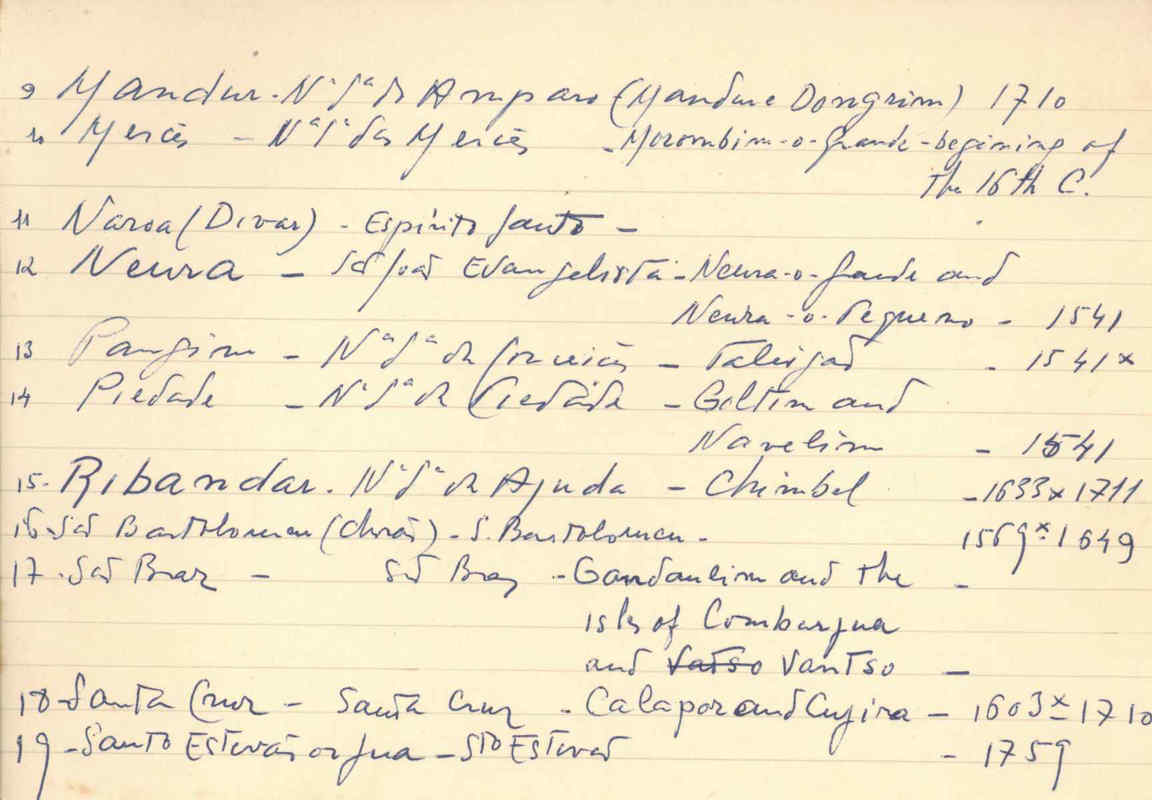 9 Mandur - Nª Sª do Amparo (Mandur e Dongrim) 1710
10 Mercês - Nª Sª das Mercês - Morombim-o-Grande - begining of
the 16th C.
11 Naroa (Divar) - Espírito Santo -
12 Neura - São João Evangelista - Neura-o-Grande and
Neura-o-Pequeno - 1541
13 Pangim - Nª Sª da Conceição - Taleigão - 1541 x
14 Piedade - Nª Sª da Piedade - Goltim and
Navelim - 1541
15- Ribandar - Nª Sª da Ajuda - Chimbel - 1633 x 1711
16- São Bartolomeu (Chorão) - S. Bartolomeu - 1569 x 1649
17- São Braz - São Braz - Gandaulim and the
isles of Combarjua
and Vatso Vantso -
18- Santa Cruz - Santa Cruz - Calapor and Cujira - 1603 x 1710
19 - Santo Estevão or Jua - Sto Estevão - 1759